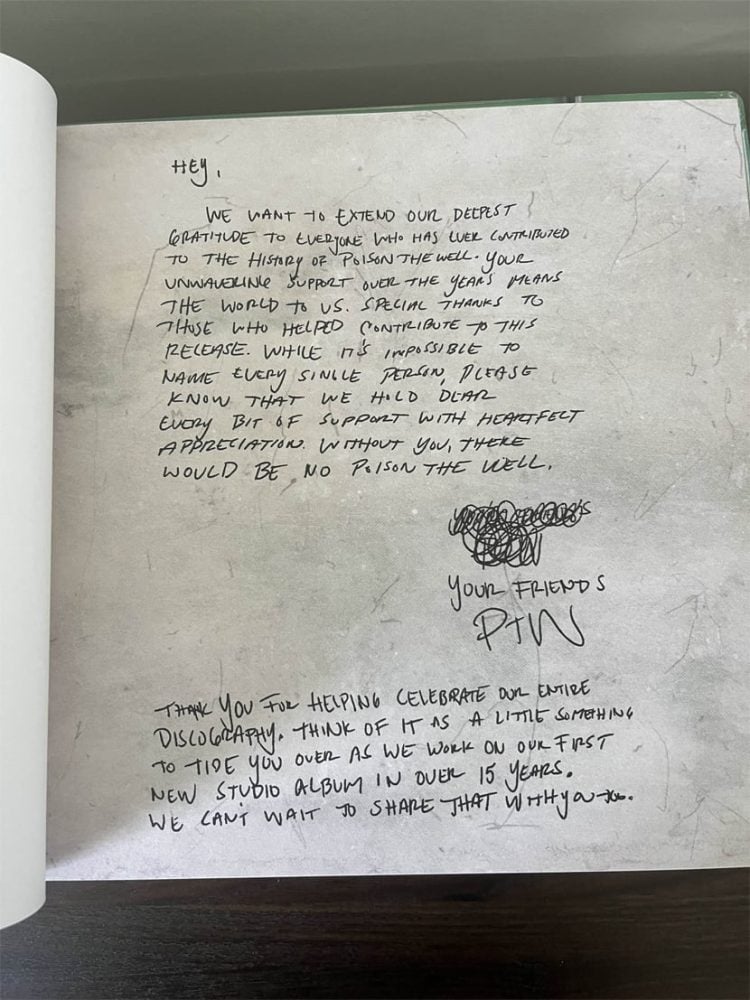 HEY,
WE WANT TO EXTEND OUR DEEPEST
GRATITUDE TO EVERYONE WHO HAS EVER CONTRIBUTED
TO THE HISTORY OF POISON THE WELL. YOUR
UNWAVERING SUPPORT OVER THE YEARS MEANS
THE WORLD TO US. SPECIAL THANKS TO
THOSE WHO HELPED CONTRIBUTE TO THIS
RELEASE. WHILE IT'S IMPOSSIBLE TO
NAME EVERY SINGLE PERSON, PLEASE
KNOW THAT WE HOLD DEAR
EVERY BIT OF SUPPORT WITH HEARTFELT
APPRECIATION. WITHOUT YOU, THERE
WOULD BE NO POISON THE WELL.
YOUR FRIENDS
PTW
THANK YOU FOR HELPING CELEBRATE OUR ENTIRE
DISCOGRAPHY. THINK OF IT AS A LITTLE SOMETHING
TO TIDE YOU OVER AS WE WORK ON OUR FIRST
NEW STUDIO ALBUM IN OVER 15 YEARS.
WE CANT WAIT TO SHARE THAT WITH YOU